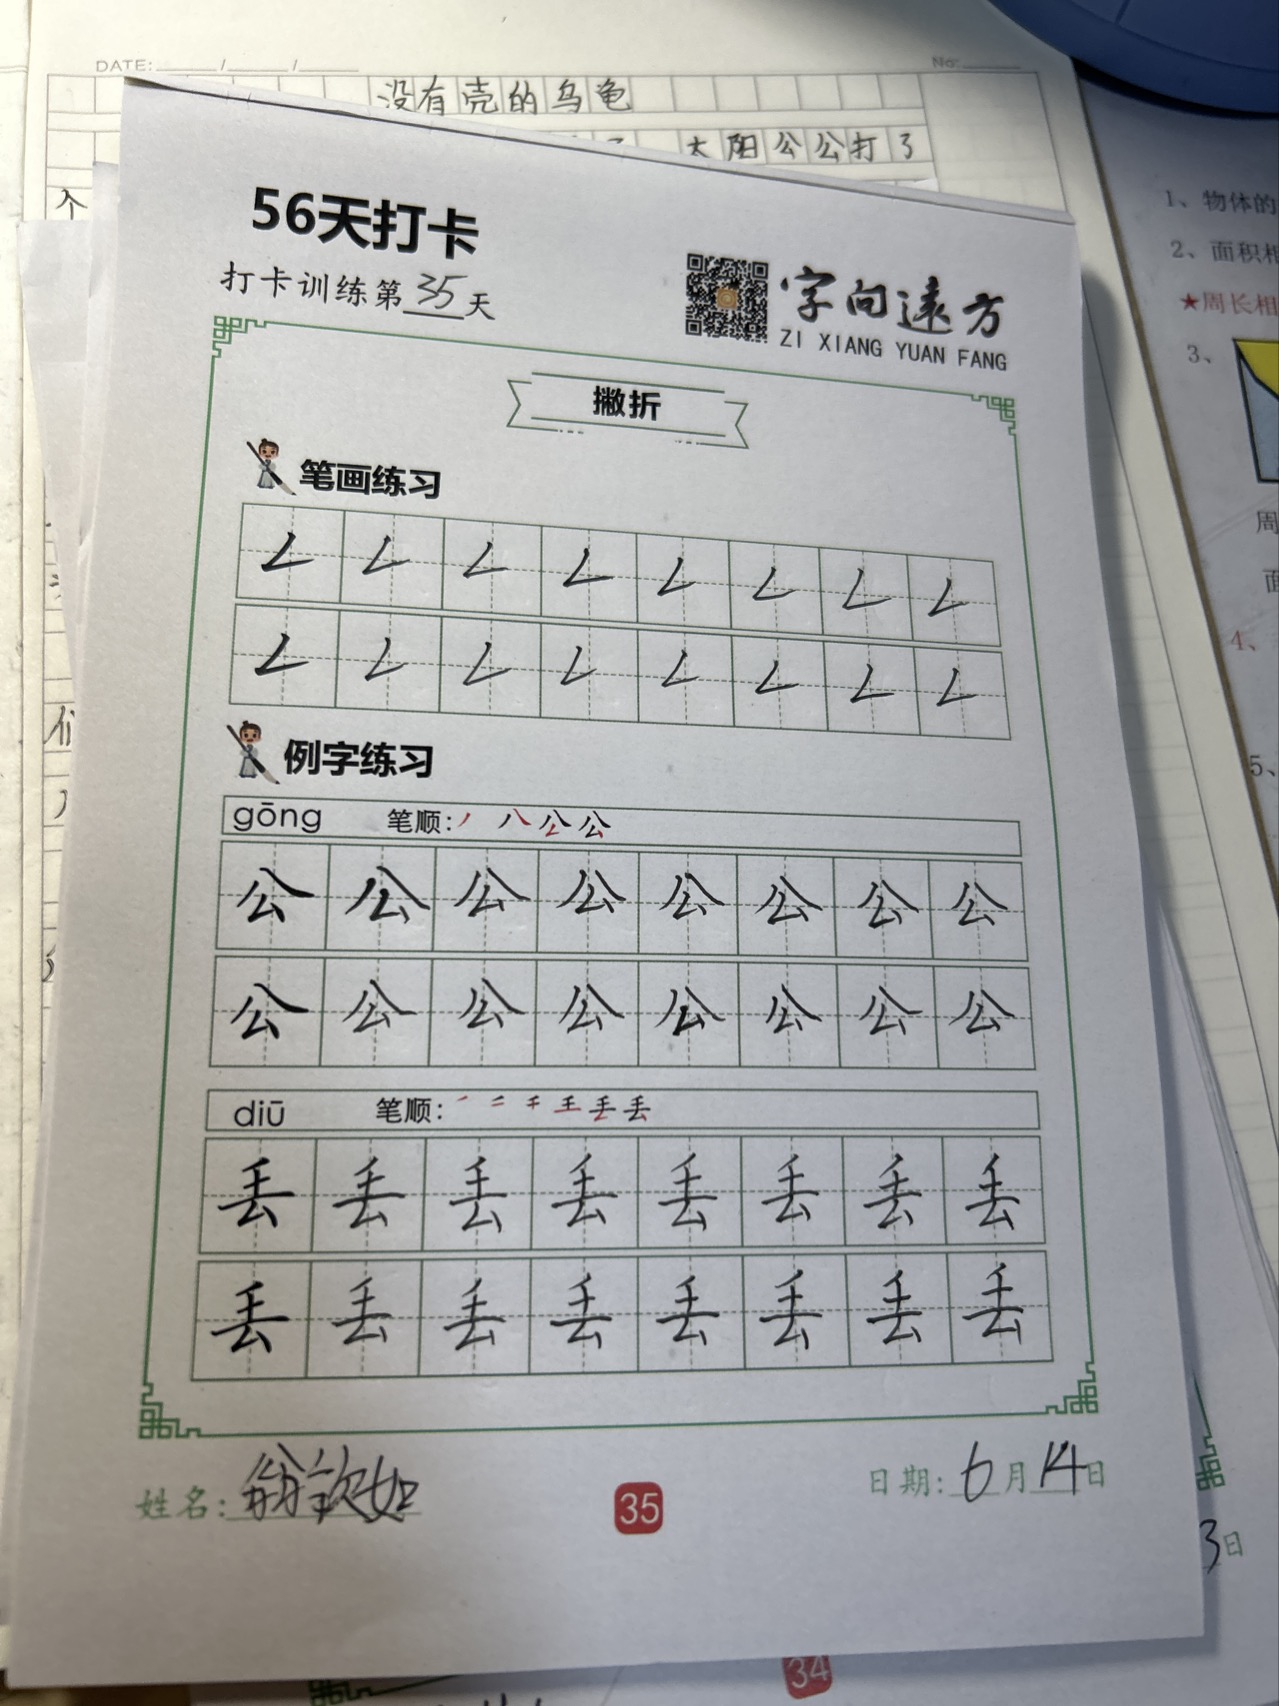 DATE: / /
No:
没有壳的乌龟
太阳公公打了
个
56天打卡
打卡训练第35天
字向远方
ZI XIANG YUAN FANG
撇折
笔画练习
𠃋 𠃋 𠃋 𠃋 𠃋 𠃋 𠃋 𠃋
𠃋 𠃋 𠃋 𠃋 𠃋 𠃋 𠃋 𠃋
例字练习
gōng 笔顺:
公 公 公 公 公 公 公 公
公 公 公 公 公 公 公 公
diū 笔顺:
丢 丢 丢 丢 丢 丢 丢 丢
丢 丢 丢 丢 丢 丢 丢 丢
姓名:翁歆如
35
日期:6月14日
1、物体的
2、面积相
★周长相
3、
周
面
4、
5、
们
3日
34